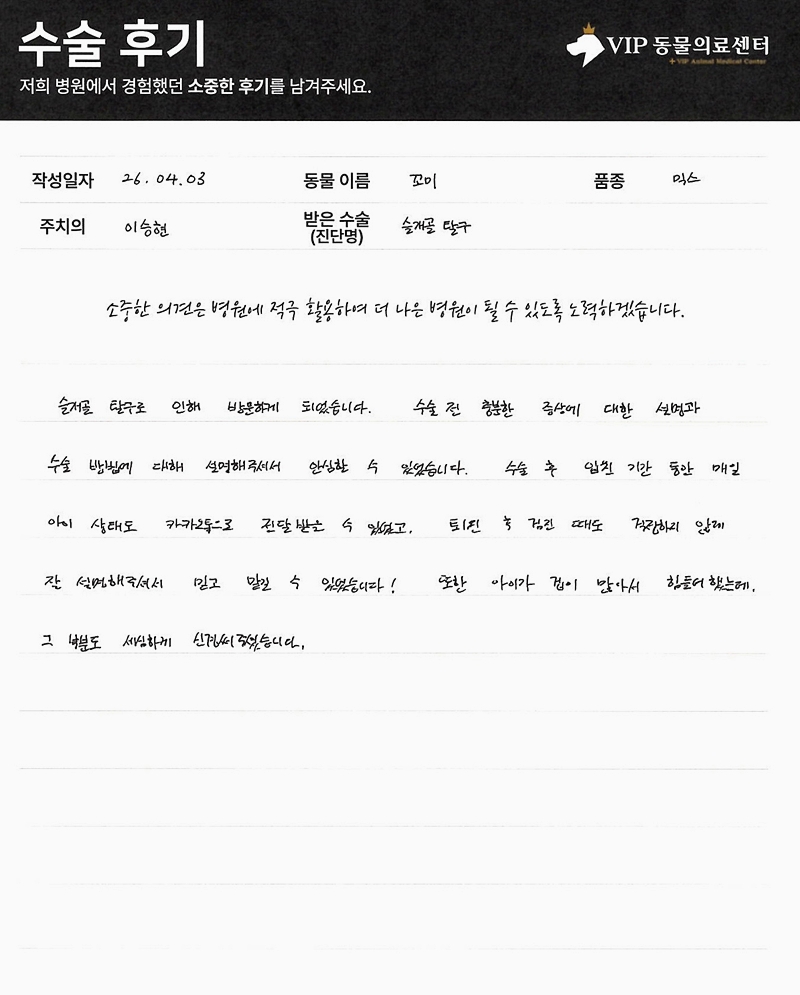 수술 후기
VIP 동물의료센터
VIP Animal Medical Center
저희 병원에서 경험했던 소중한 후기를 남겨주세요.
작성일자 26.04.03 동물 이름 꼬미 품종 믹스
주치의 이승현 받은 수술 (진단명) 슬개골 탈구
소중한 의견은 병원에 적극 활용하여 더 나은 병원이 될 수 있도록 노력하겠습니다.
슬개골 탈구로 인해 방문하게 되었습니다. 수술 전 충분한 증상에 대한 설명과
수술 방법에 대해 설명해주셔서 안심할 수 있었습니다. 수술 후 입원 기간 동안 매일
아이 상태도 카카오톡으로 전달받을 수 있었고, 퇴원 후 검진 때도 걱정하지 않게
잘 설명해주셔서 믿고 맡길 수 있었습니다! 또한 아이가 겁이 많아서 힘들어했는데,
그 부분도 세심하게 신경써주셨습니다.